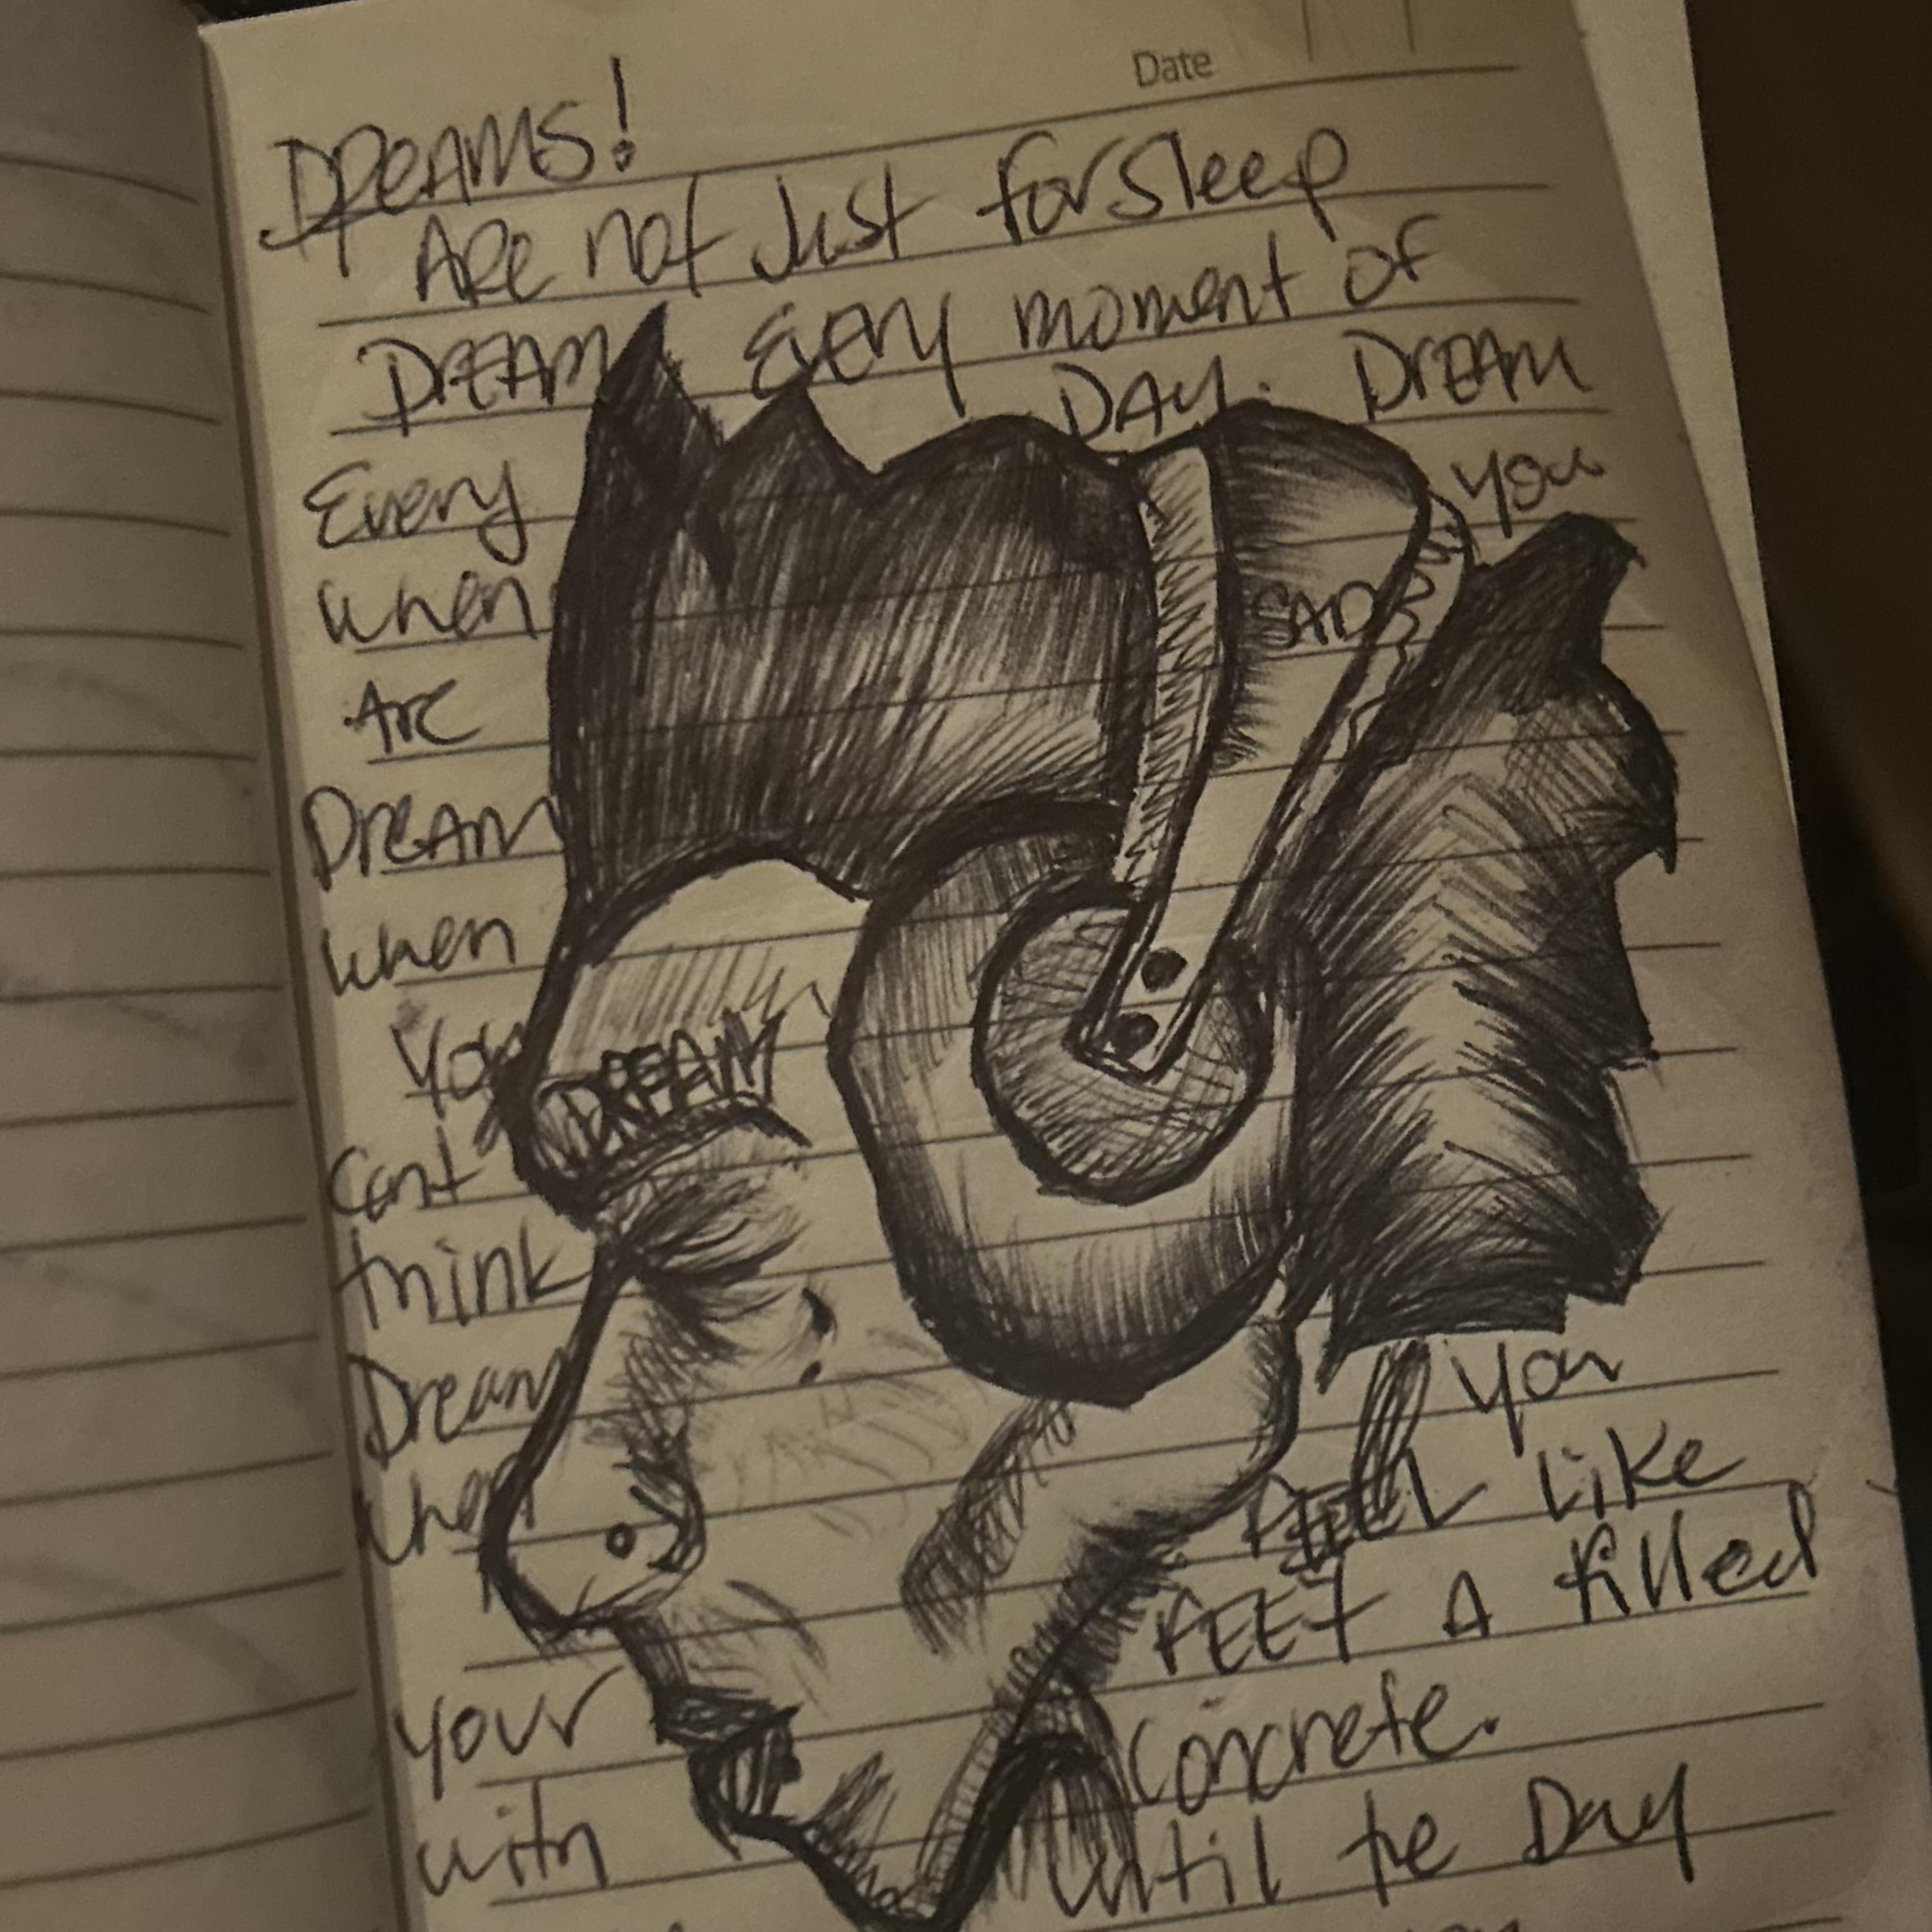 Date
DREAMS!
Are not Just for sleep
DREAM Every moment of
DAY. Dream
Every you
when SAD
Are
Dream
when
You
DREAM
Cant
think
Dream
when you
FEEL Like
your FEET A filled
with concrete.
until the Day